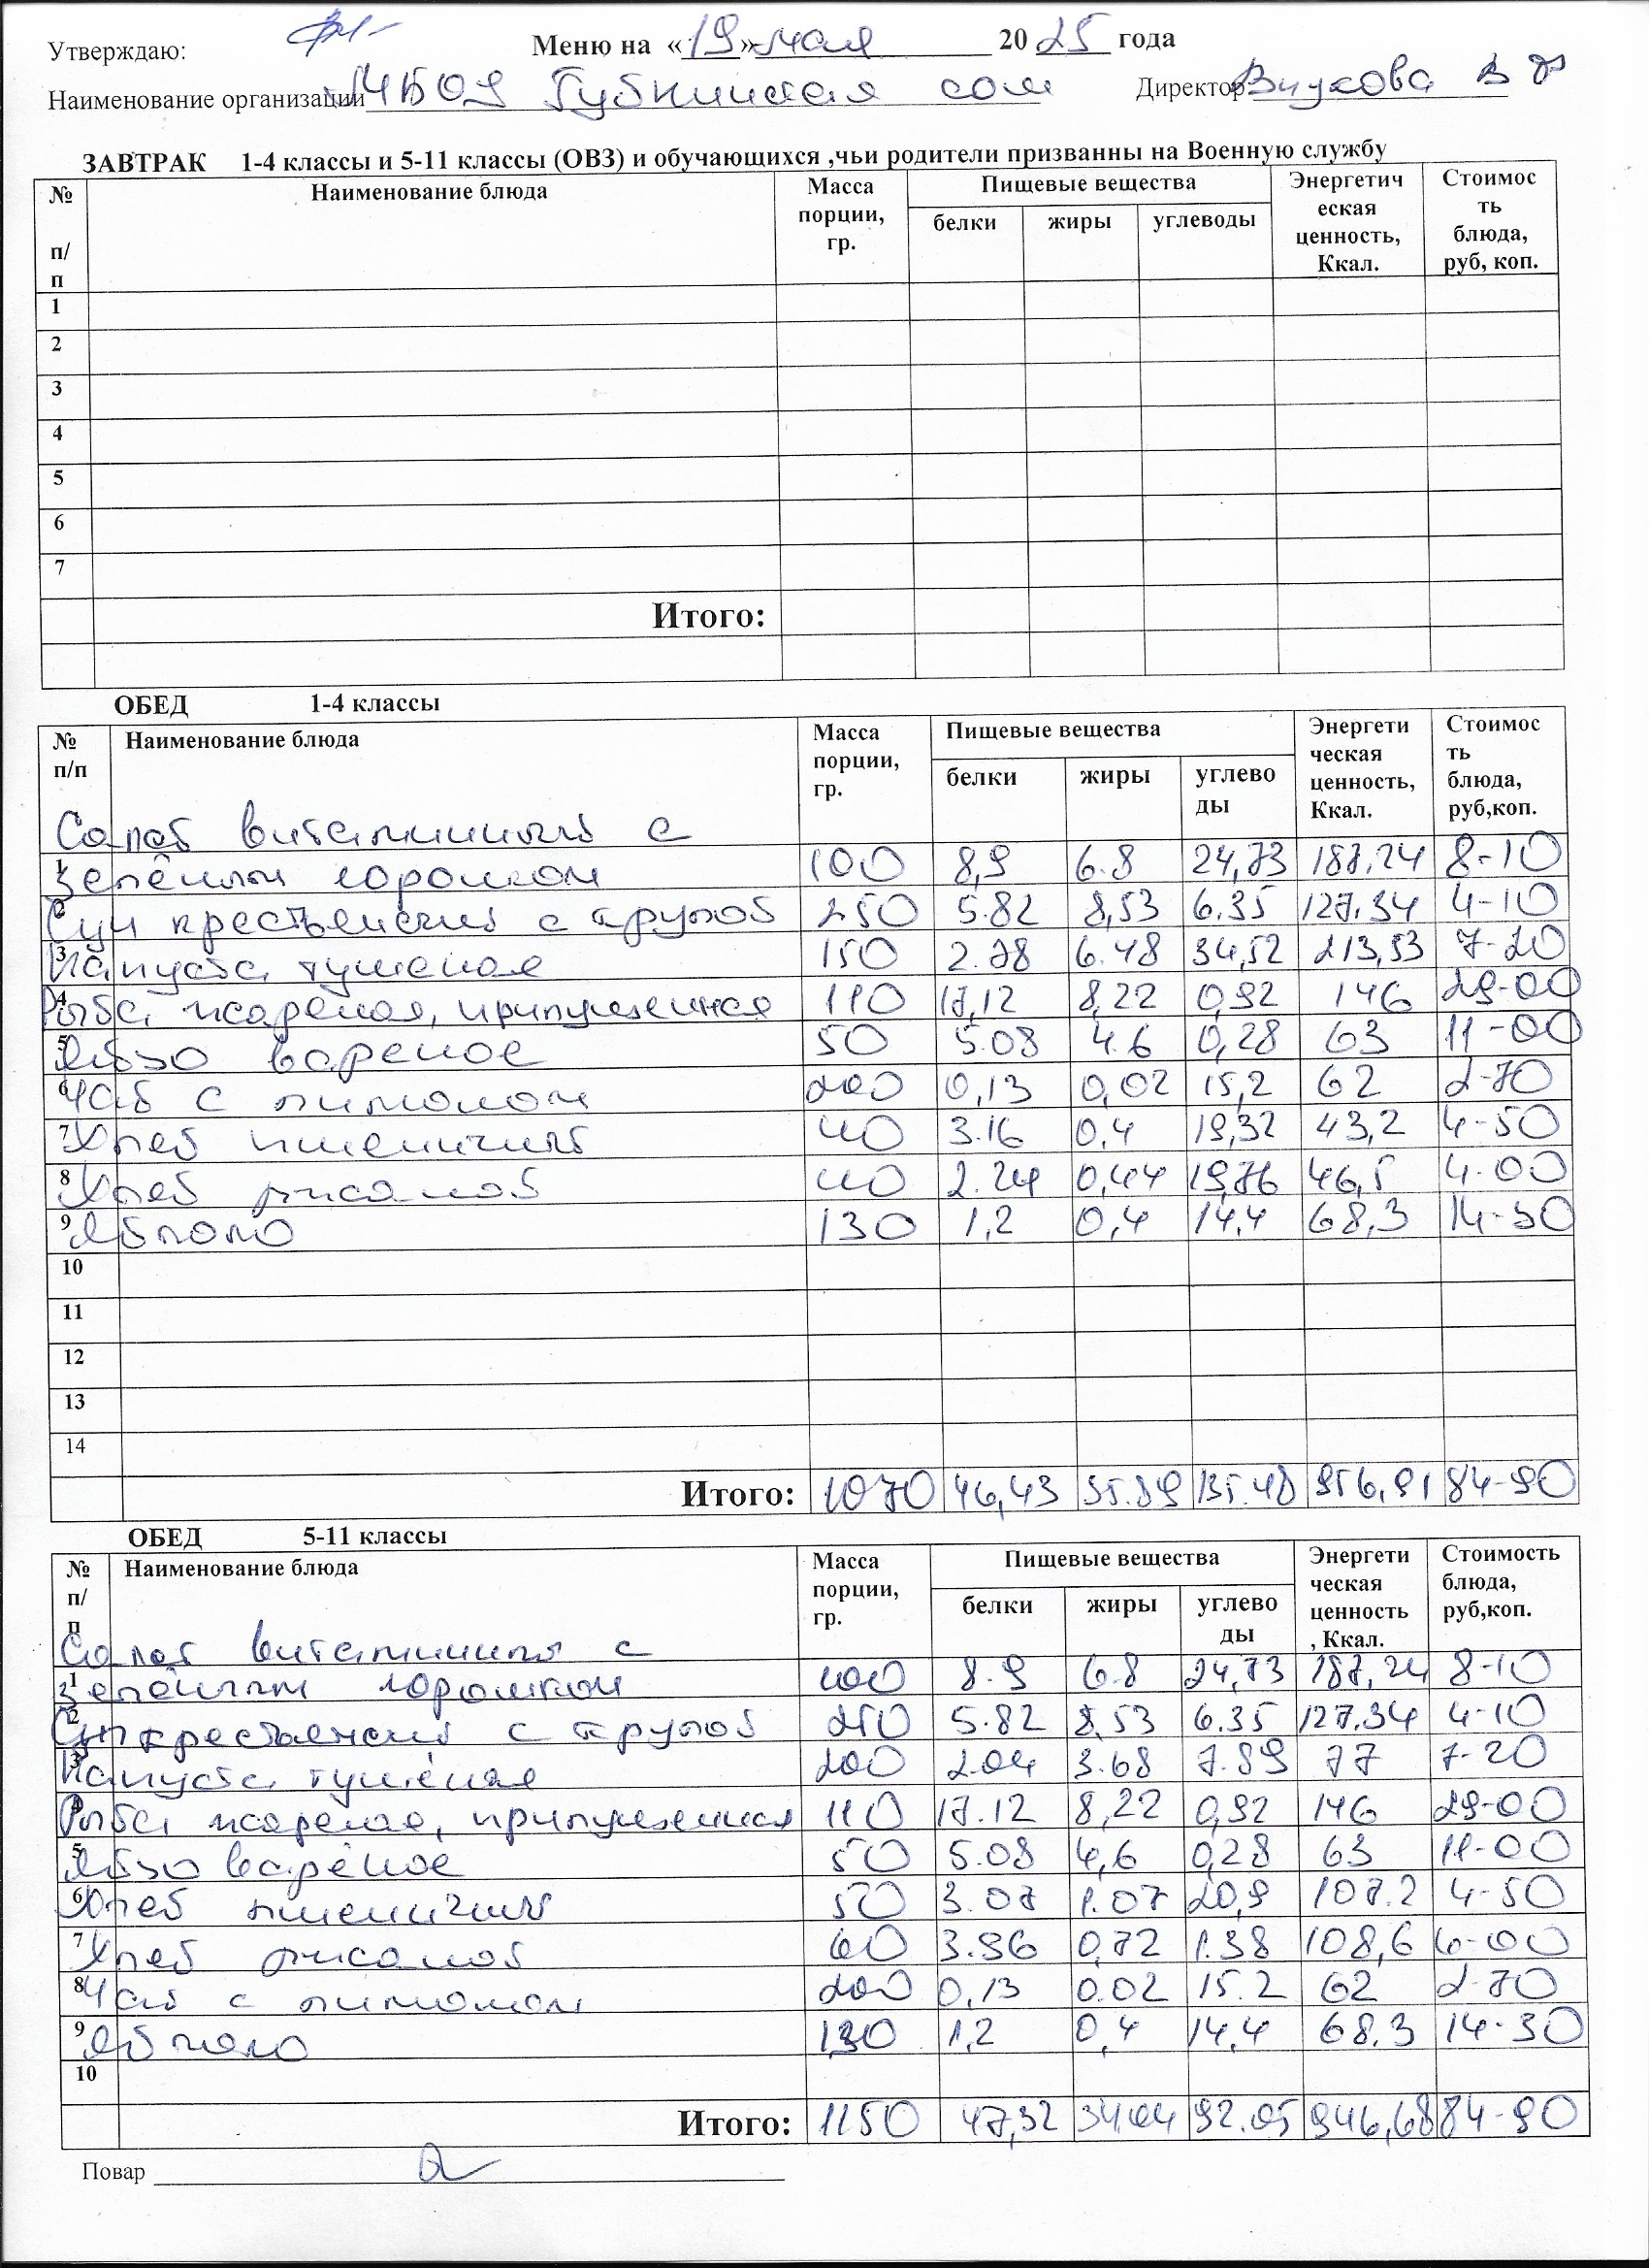 Утверждаю:
Меню на «19» мая 2025 года
Наименование организации МБОУ Губкинская сош Директор Внукова В
ЗАВТРАК 1-4 классы и 5-11 классы (ОВЗ) и обучающихся ,чьи родители призванны на Военную службу
№ п/п Наименование блюда Масса порции, гр. Пищевые вещества Энергетическая ценность, Ккал. Стоимость блюда, руб, коп.
белки жиры углеводы
1
2
3
4
5
6
7
Итого:
ОБЕД 1-4 классы
№ п/п Наименование блюда Масса порции, гр. Пищевые вещества Энергетическая ценность, Ккал. Стоимость блюда, руб,коп.
белки жиры углеводы
Салат витаминный с
1 зелёным горошком 100 8,9 6.8 24,73 187.24 8-10
2 Суп крестьянский с крупой 250 5.82 8,53 6.35 127.34 4-10
3 Капуста тушеная 150 2.78 6.48 34,52 213,53 7-20
4 Рыба жареная, припущенная 110 17,12 8,22 0,92 146 29-00
5 Яйцо вареное 50 5.08 4.6 0,28 63 11-00
6 Чай с лимоном 200 0,13 0,02 15,2 62 2-70
7 Хлеб пшеничный 40 3.16 0,4 19,32 43,2 4-50
8 Хлеб ржаной 40 2.24 0,44 19,76 46,5 4-00
9 Яблоко 130 1,2 0,4 14,4 68,3 14-30
10
11
12
13
14
Итого: 1070 46,43 35.89 135.48 956,91 84-90
ОБЕД 5-11 классы
№ п/п Наименование блюда Масса порции, гр. Пищевые вещества Энергетическая ценность, Ккал. Стоимость блюда, руб,коп.
белки жиры углеводы
Салат витаминный с
1 зелёным горошком 100 8.9 6.8 24,73 187,24 8-10
2 Суп крестьянский с крупой 250 5.82 8,53 6.35 127.34 4-10
3 Капуста тушёная 200 2.04 3.68 7.89 77 7-20
4 Рыба жареная, припущенная 110 17.12 8,22 0,92 146 29-00
5 Яйцо варёное 50 5.08 4,6 0,28 63 11-00
6 Хлеб пшеничный 50 3.07 1.07 20,9 107.2 4-50
7 Хлеб ржаной 60 3.96 0,72 1.38 108,6 6-00
8 Чай с лимоном 200 0,13 0.02 15.2 62 2-70
9 Яблоко 130 1,2 0,4 14,4 68.3 14-30
10
Итого: 1150 47,32 34.04 92.05 946,68 84-90
Повар